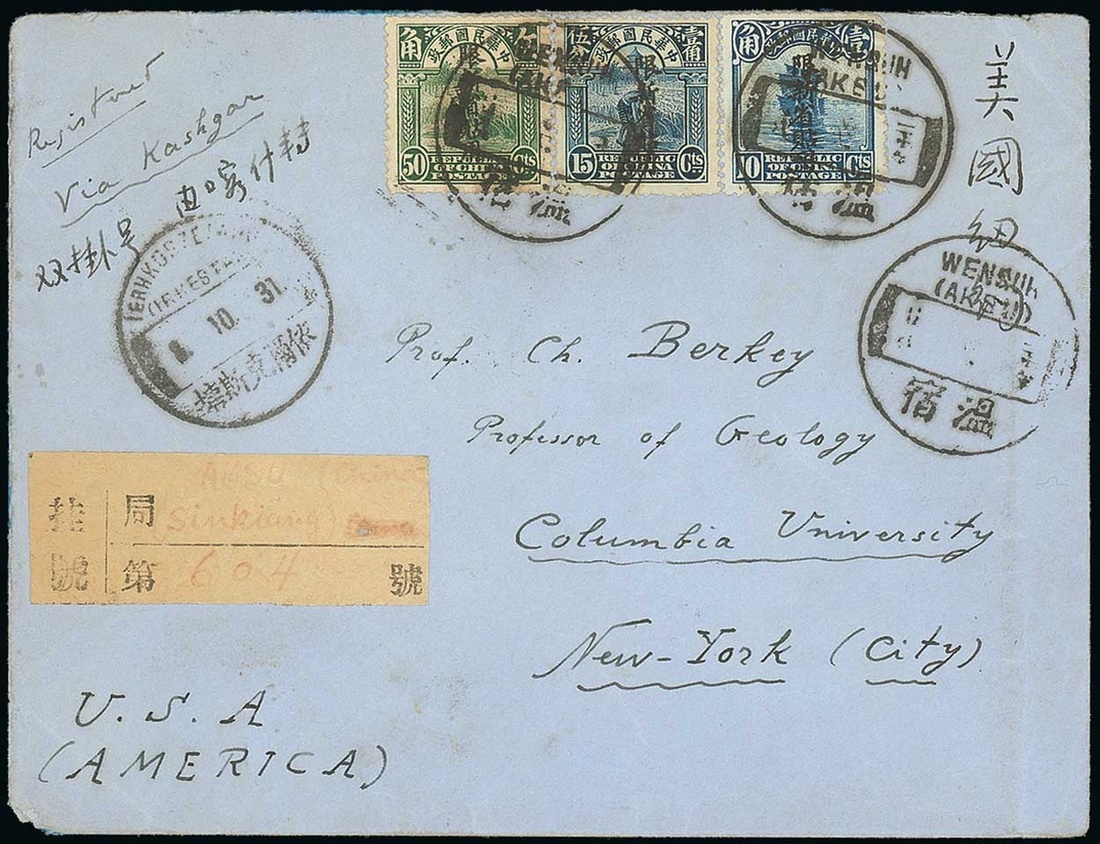 Registered
Via Kashgar
由喀什转
双挂号
角
中華民國郵政
限
50 Cts
REPUBLIC
OF CHINA
POSTAGE
伍分 壹角
中華民國郵政
限
15 Cts
REPUBLIC
OF CHINA
POSTAGE
角 壹
中華民國郵政
限
10 Cts
REPUBLIC
OF CHINA
POSTAGE
溫宿
溫宿
美國紐
WENSUH
(AKSU)
溫宿
8. 10. 31.
依爾克斯塘
Prof. Ch. Berkey
Professor of Geology
Columbia University
New-York (City)
掛號
局 AKSU (China
Sinkiang)
第 604 號
U.S.A
(AMERICA)